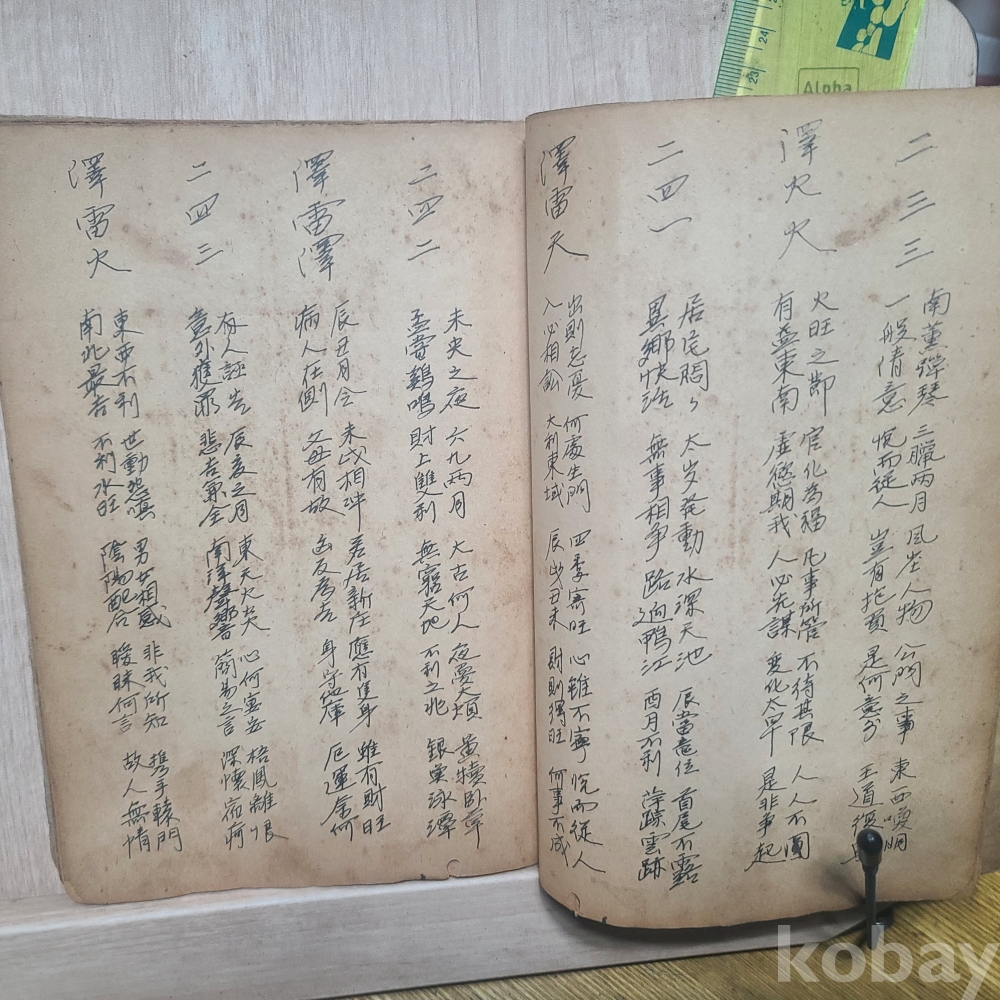 二三三
南薰彈琴 三臘兩月 風坐人物 公門之事 東西喚明
一般情意 悅而從人 豈有抱頭 是何意 王道
澤火火
火旺之節 官化為福 凡事所管 不待其限 人人不圓
有益東南 虛慾期我 人必先謀 變化太早 是非事起
二四一
居宅悶々 太岁發動 水深天池 辰當意位 首尾不露
異鄉快活 無事相爭 路迫鴨江 酉月不利 萍踪雲跡
澤雷天
出則忘憂 何處生門 四季寄旺 心雖不寧 悅而從人
入必相訟 大利東域 辰戌丑未 財則獨旺 何事不成
二四二
未央之夜 六九兩月 大古何人 夜夢大煩 黃犢臥草
孟嘗鷄鳴 財上雙利 無窮天地 不利之兆 銀泳潭
澤雷澤
辰丑月令 未戌相冲 若居新庄 應有進身 雖有財旺
病人在側 父母有故 反為吉 身守倉庫 厄運奈何
二四三
有人誣告 辰亥之月 東天火炎 心何寃 梧鳳離恨
意外獲罪 悲吉兼全 南洋聲響 簡易之言 深懷宿痾
澤雷火
東西不利 世動怨嗔 男女相感 非我所知 携手轅門
南北最吉 不利水旺 陰陽配合 曖昧何言 故人無情
Alpha
23
24
kobay